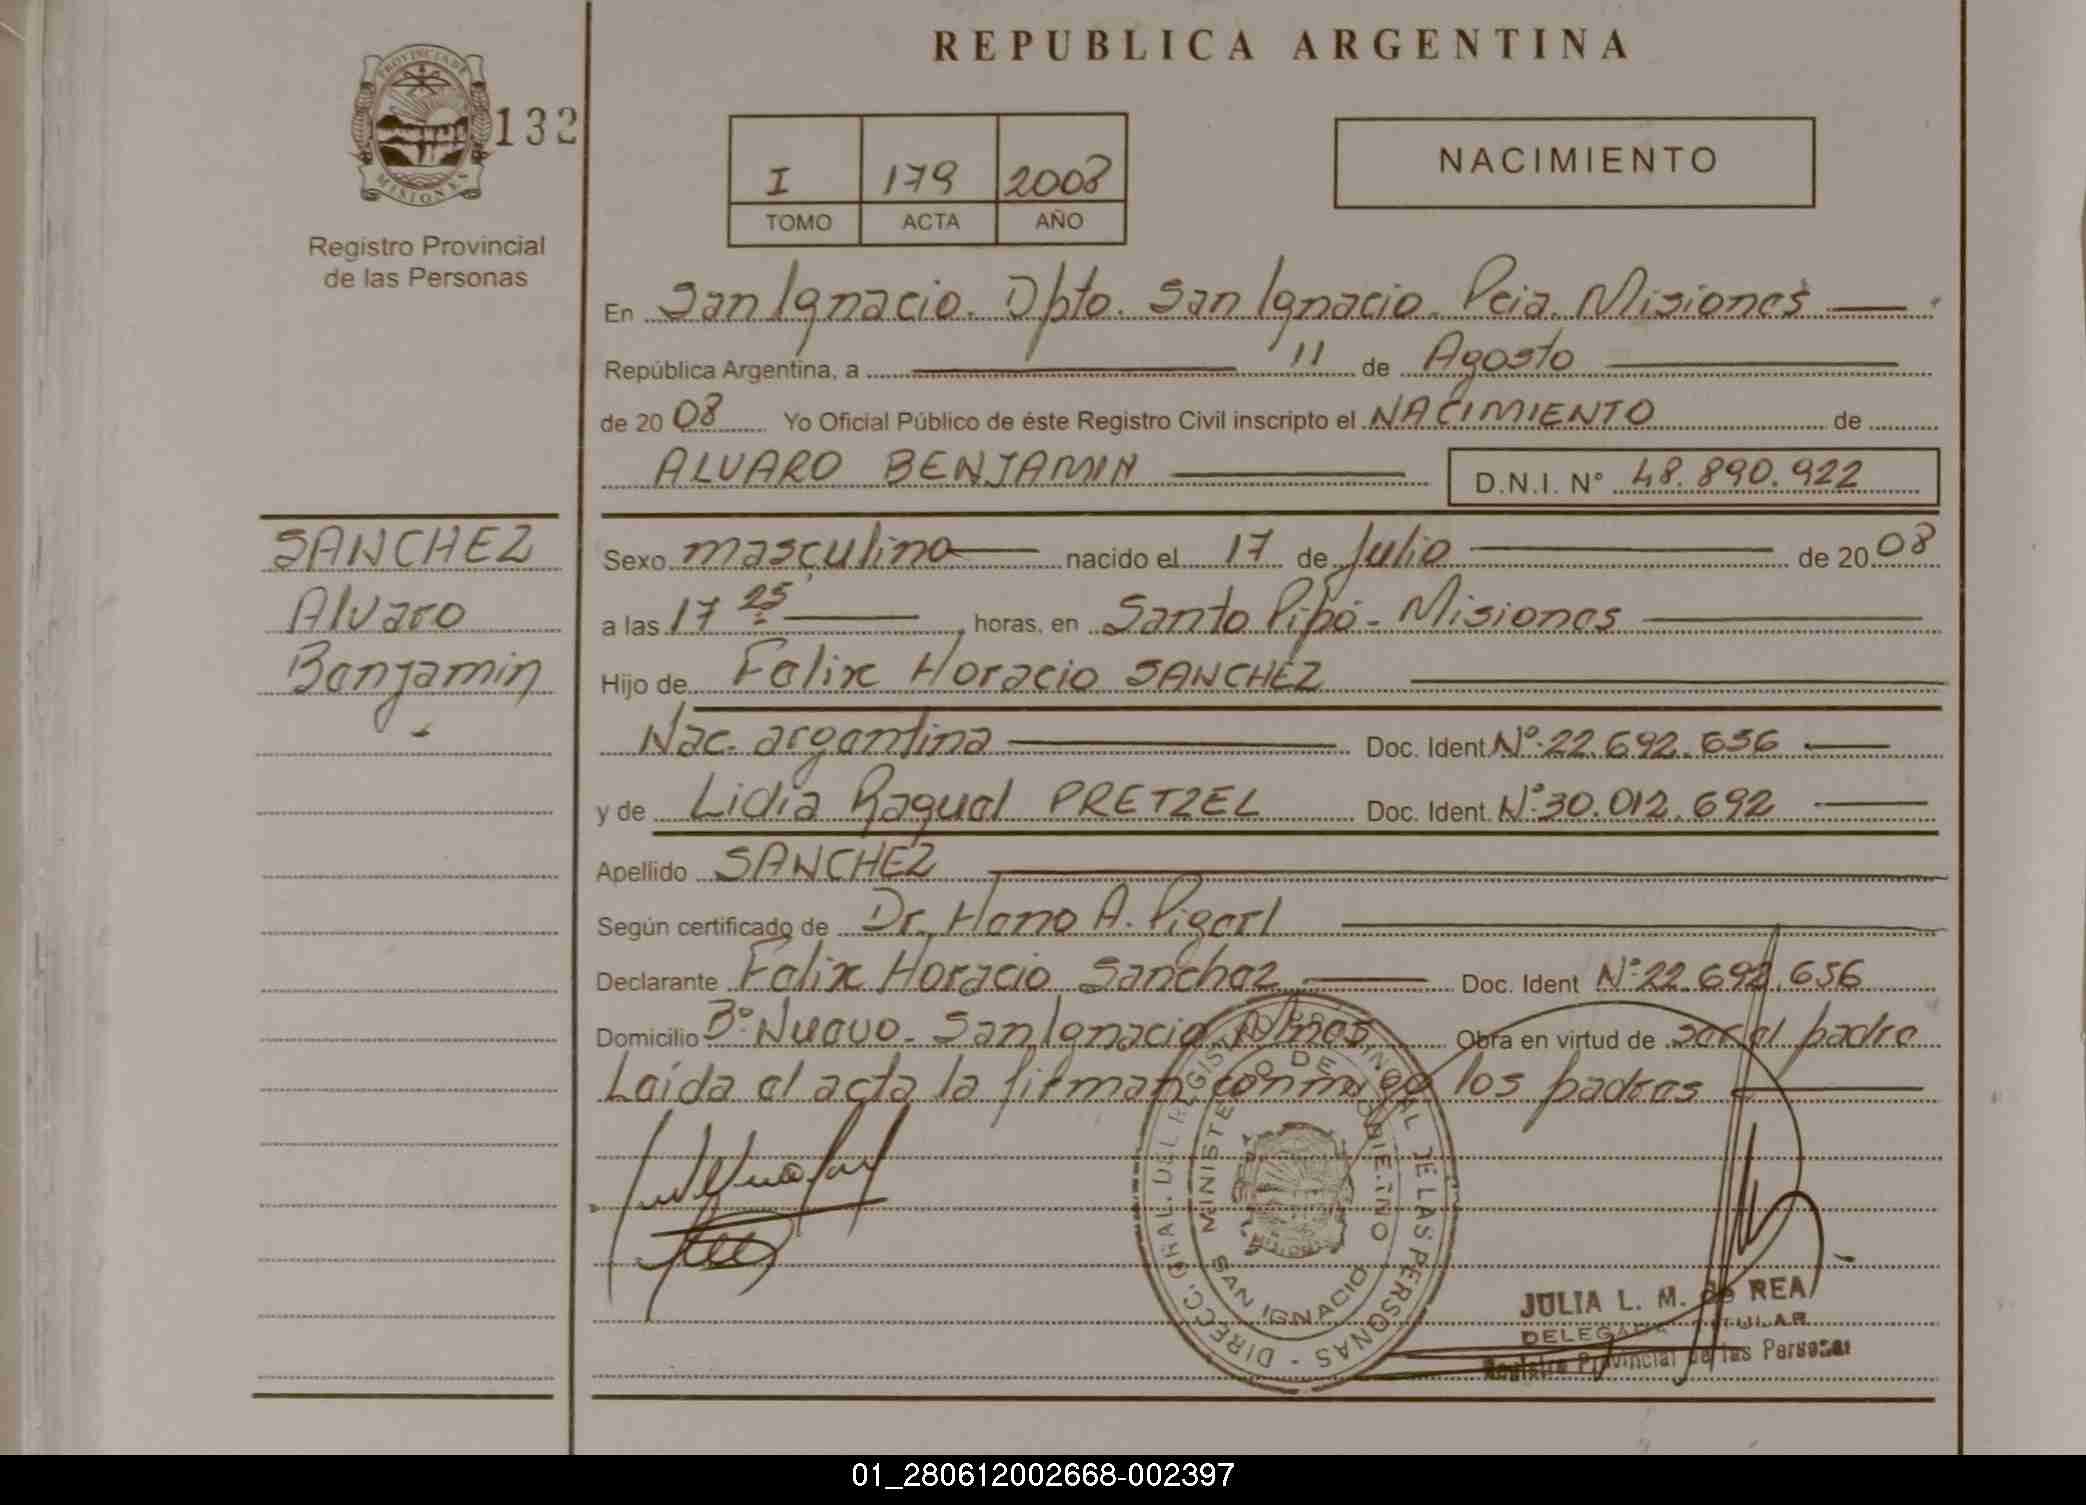 REPUBLICA ARGENTINA
PROVINCIA DE
MISIONES
132
Registro Provincial
de las Personas
I 179 2008
TOMO ACTA AÑO
NACIMIENTO
En San Ignacio. Dpto. San Ignacio. Pcia. Misiones
República Argentina, a 11 de Agosto
de 20 08 Yo Oficial Público de éste Registro Civil inscripto el NACIMIENTO de
ALVARO BENJAMIN D.N.I. Nº 48.890.922
SANCHEZ
Alvaro
Benjamin
Sexo masculino nacido el 17 de Julio de 20 08
a las 17 25 horas, en Santo Pipó - Misiones
Hijo de Felix Horacio SANCHEZ
Nac. argentina Doc. Ident. Nº: 22.692.656
y de Lidia Raquel PRETZEL Doc. Ident. Nº: 30.012.692
Apellido SANCHEZ
Según certificado de Dr. A.
Declarante Felix Horacio Sanchez Doc. Ident Nº: 22.692.656
Domicilio Bº Nuevo - San Ignacio Mnes Obra en virtud de ser el padre
Leída el acta la firman conmigo los padres
DIRECC. GRAL. DEL REGISTRO PROVINCIAL DE LAS PERSONAS -
MINISTERIO DE GOBIERNO
SAN IGNACIO
JULIA L. M. de REA
DELEGADA TITULAR
Registro Provincial de las Personas
01_280612002668-002397